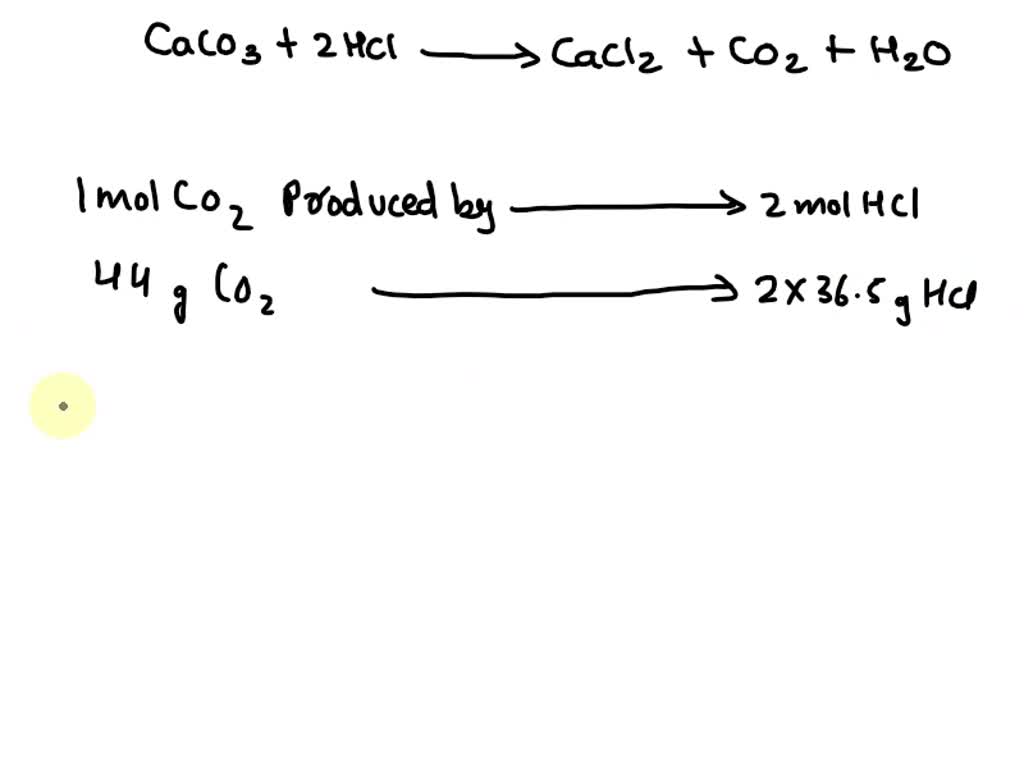 CaCO3 + 2HCl ⟶ CaCl2 + CO2 + H2O
1 mol CO2 Produced by ⟶ 2 mol HCl
44 g CO2 ⟶ 2 X 36.5 g HCl